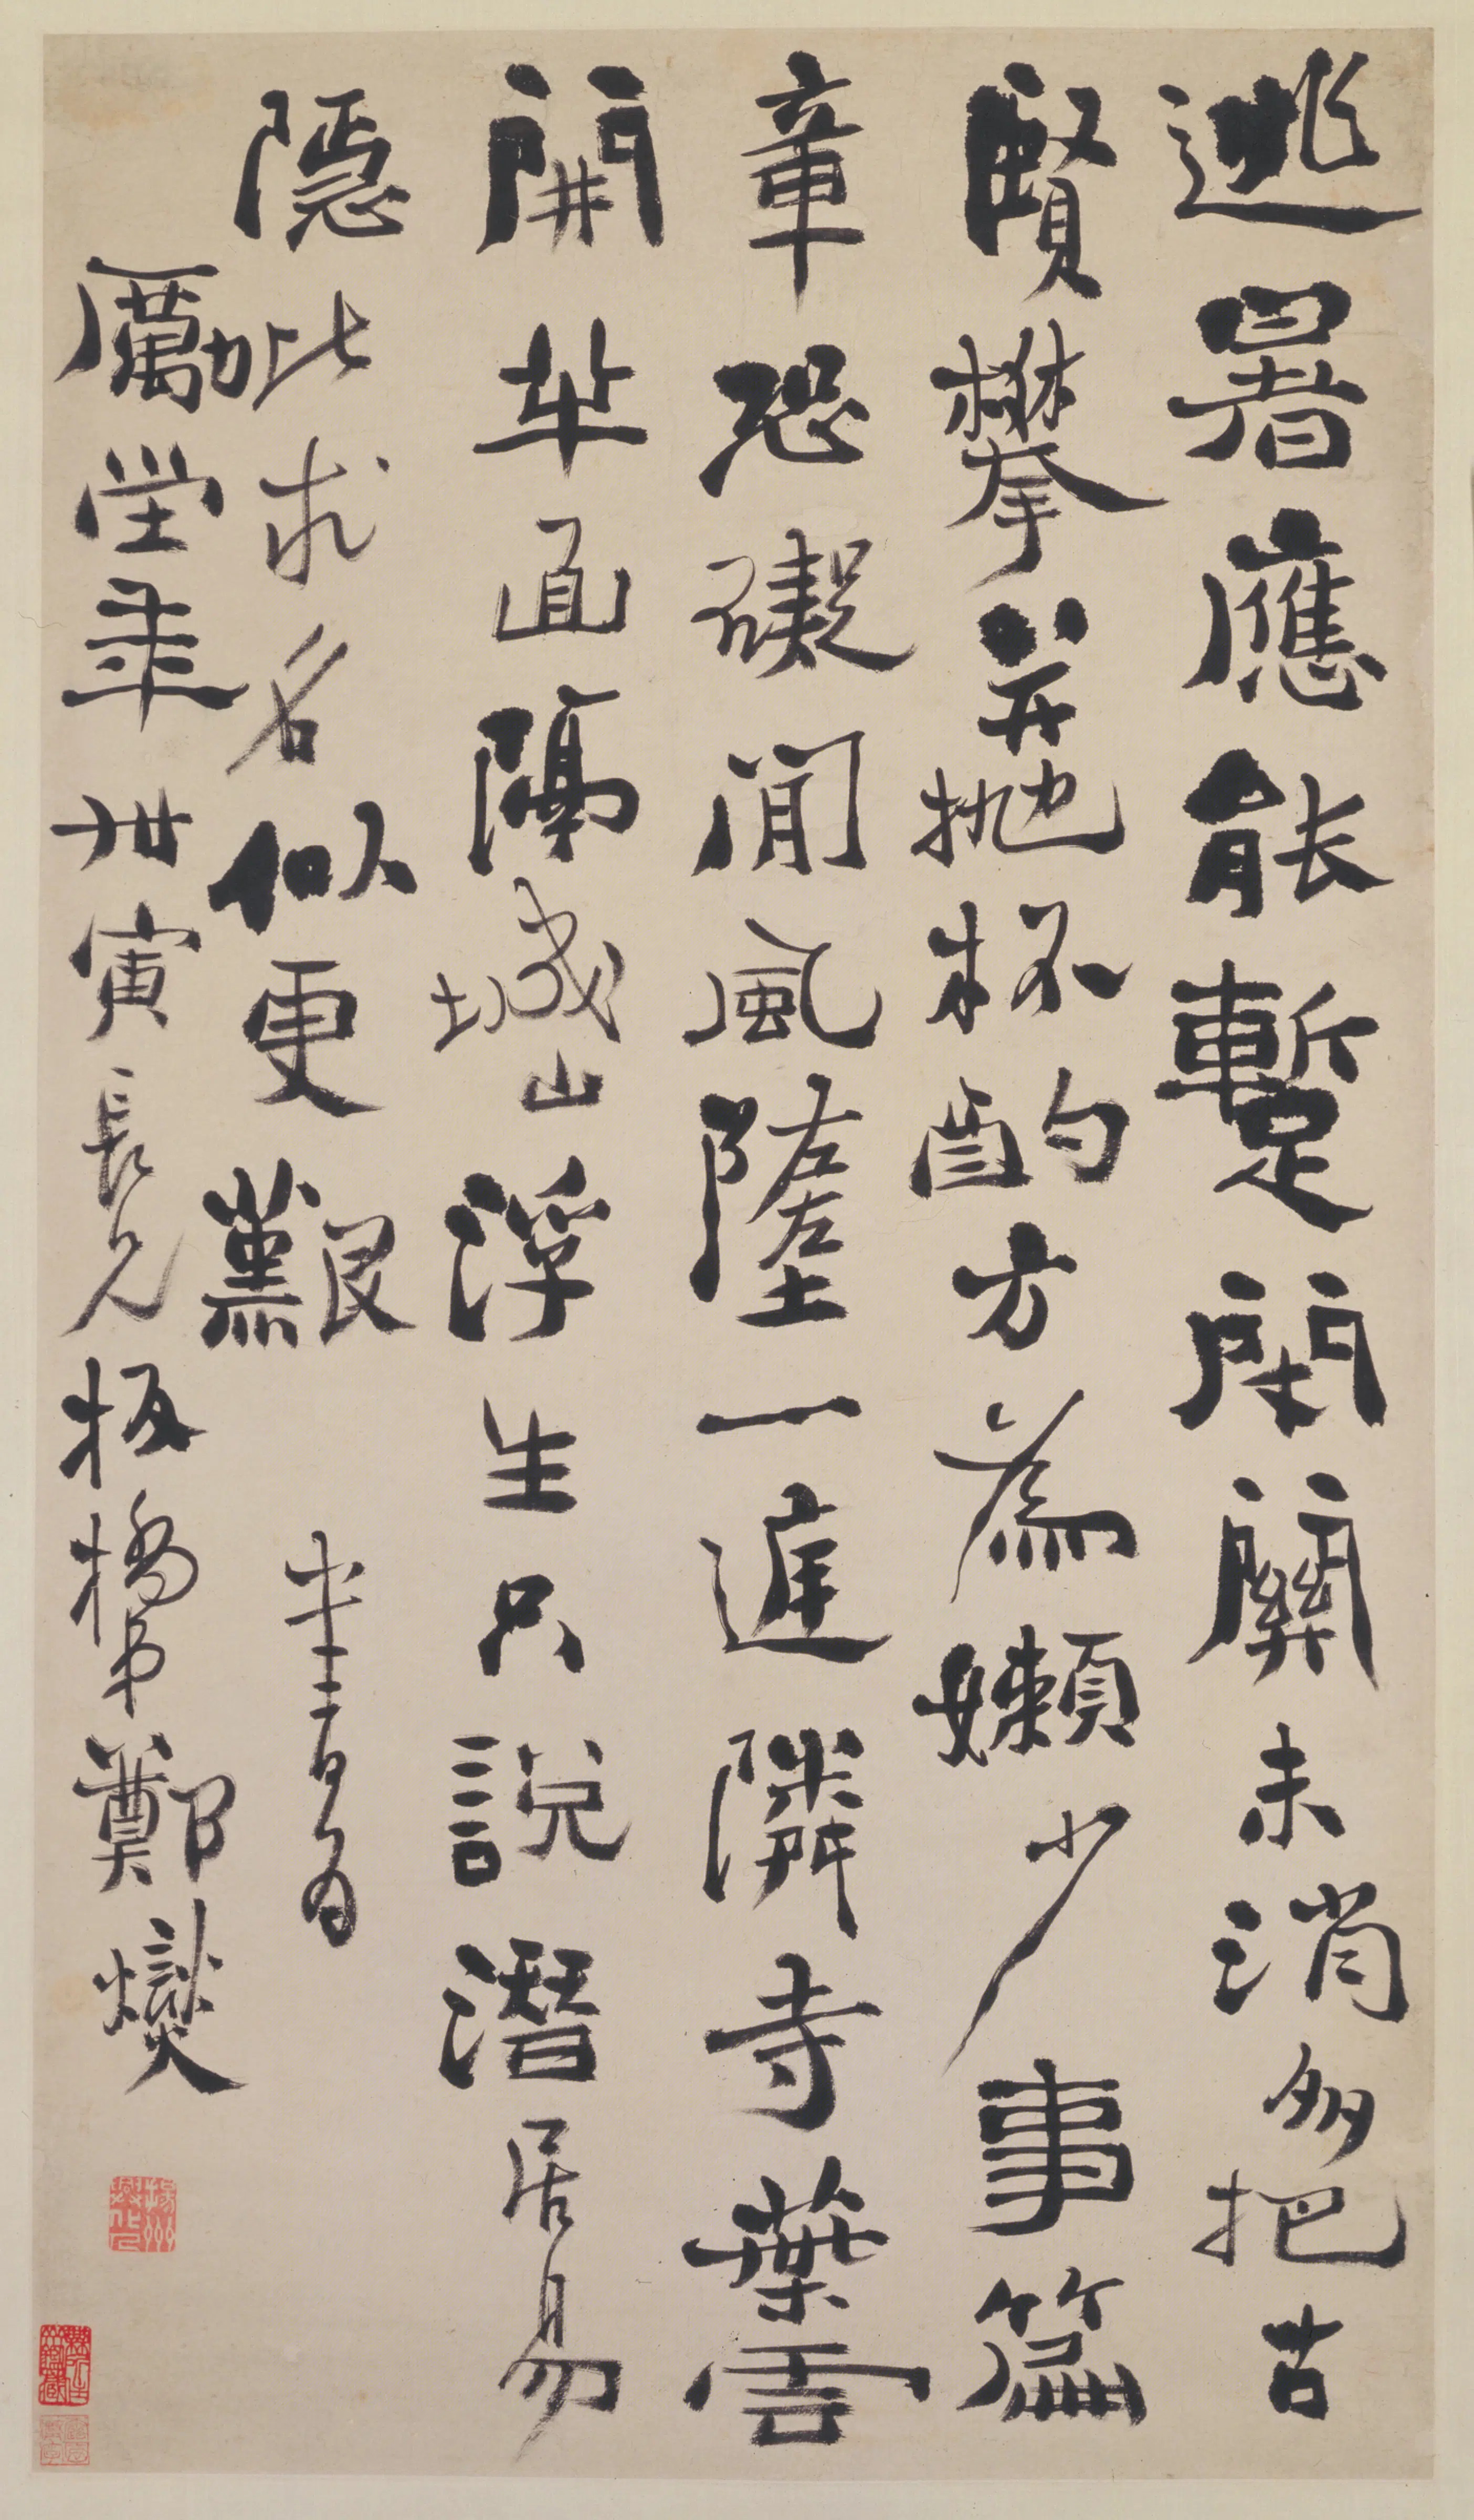 逃暑應能暫閉關未消多把古
賢攀並拋杯酌方為嬾少事篇
章恐礙閒風墮一庭隣寺葉雲
開半面隔城山浮生只說潛居易
隱比求名似更艱 書為
勵堂年世寅長兄板橋弟鄭燮